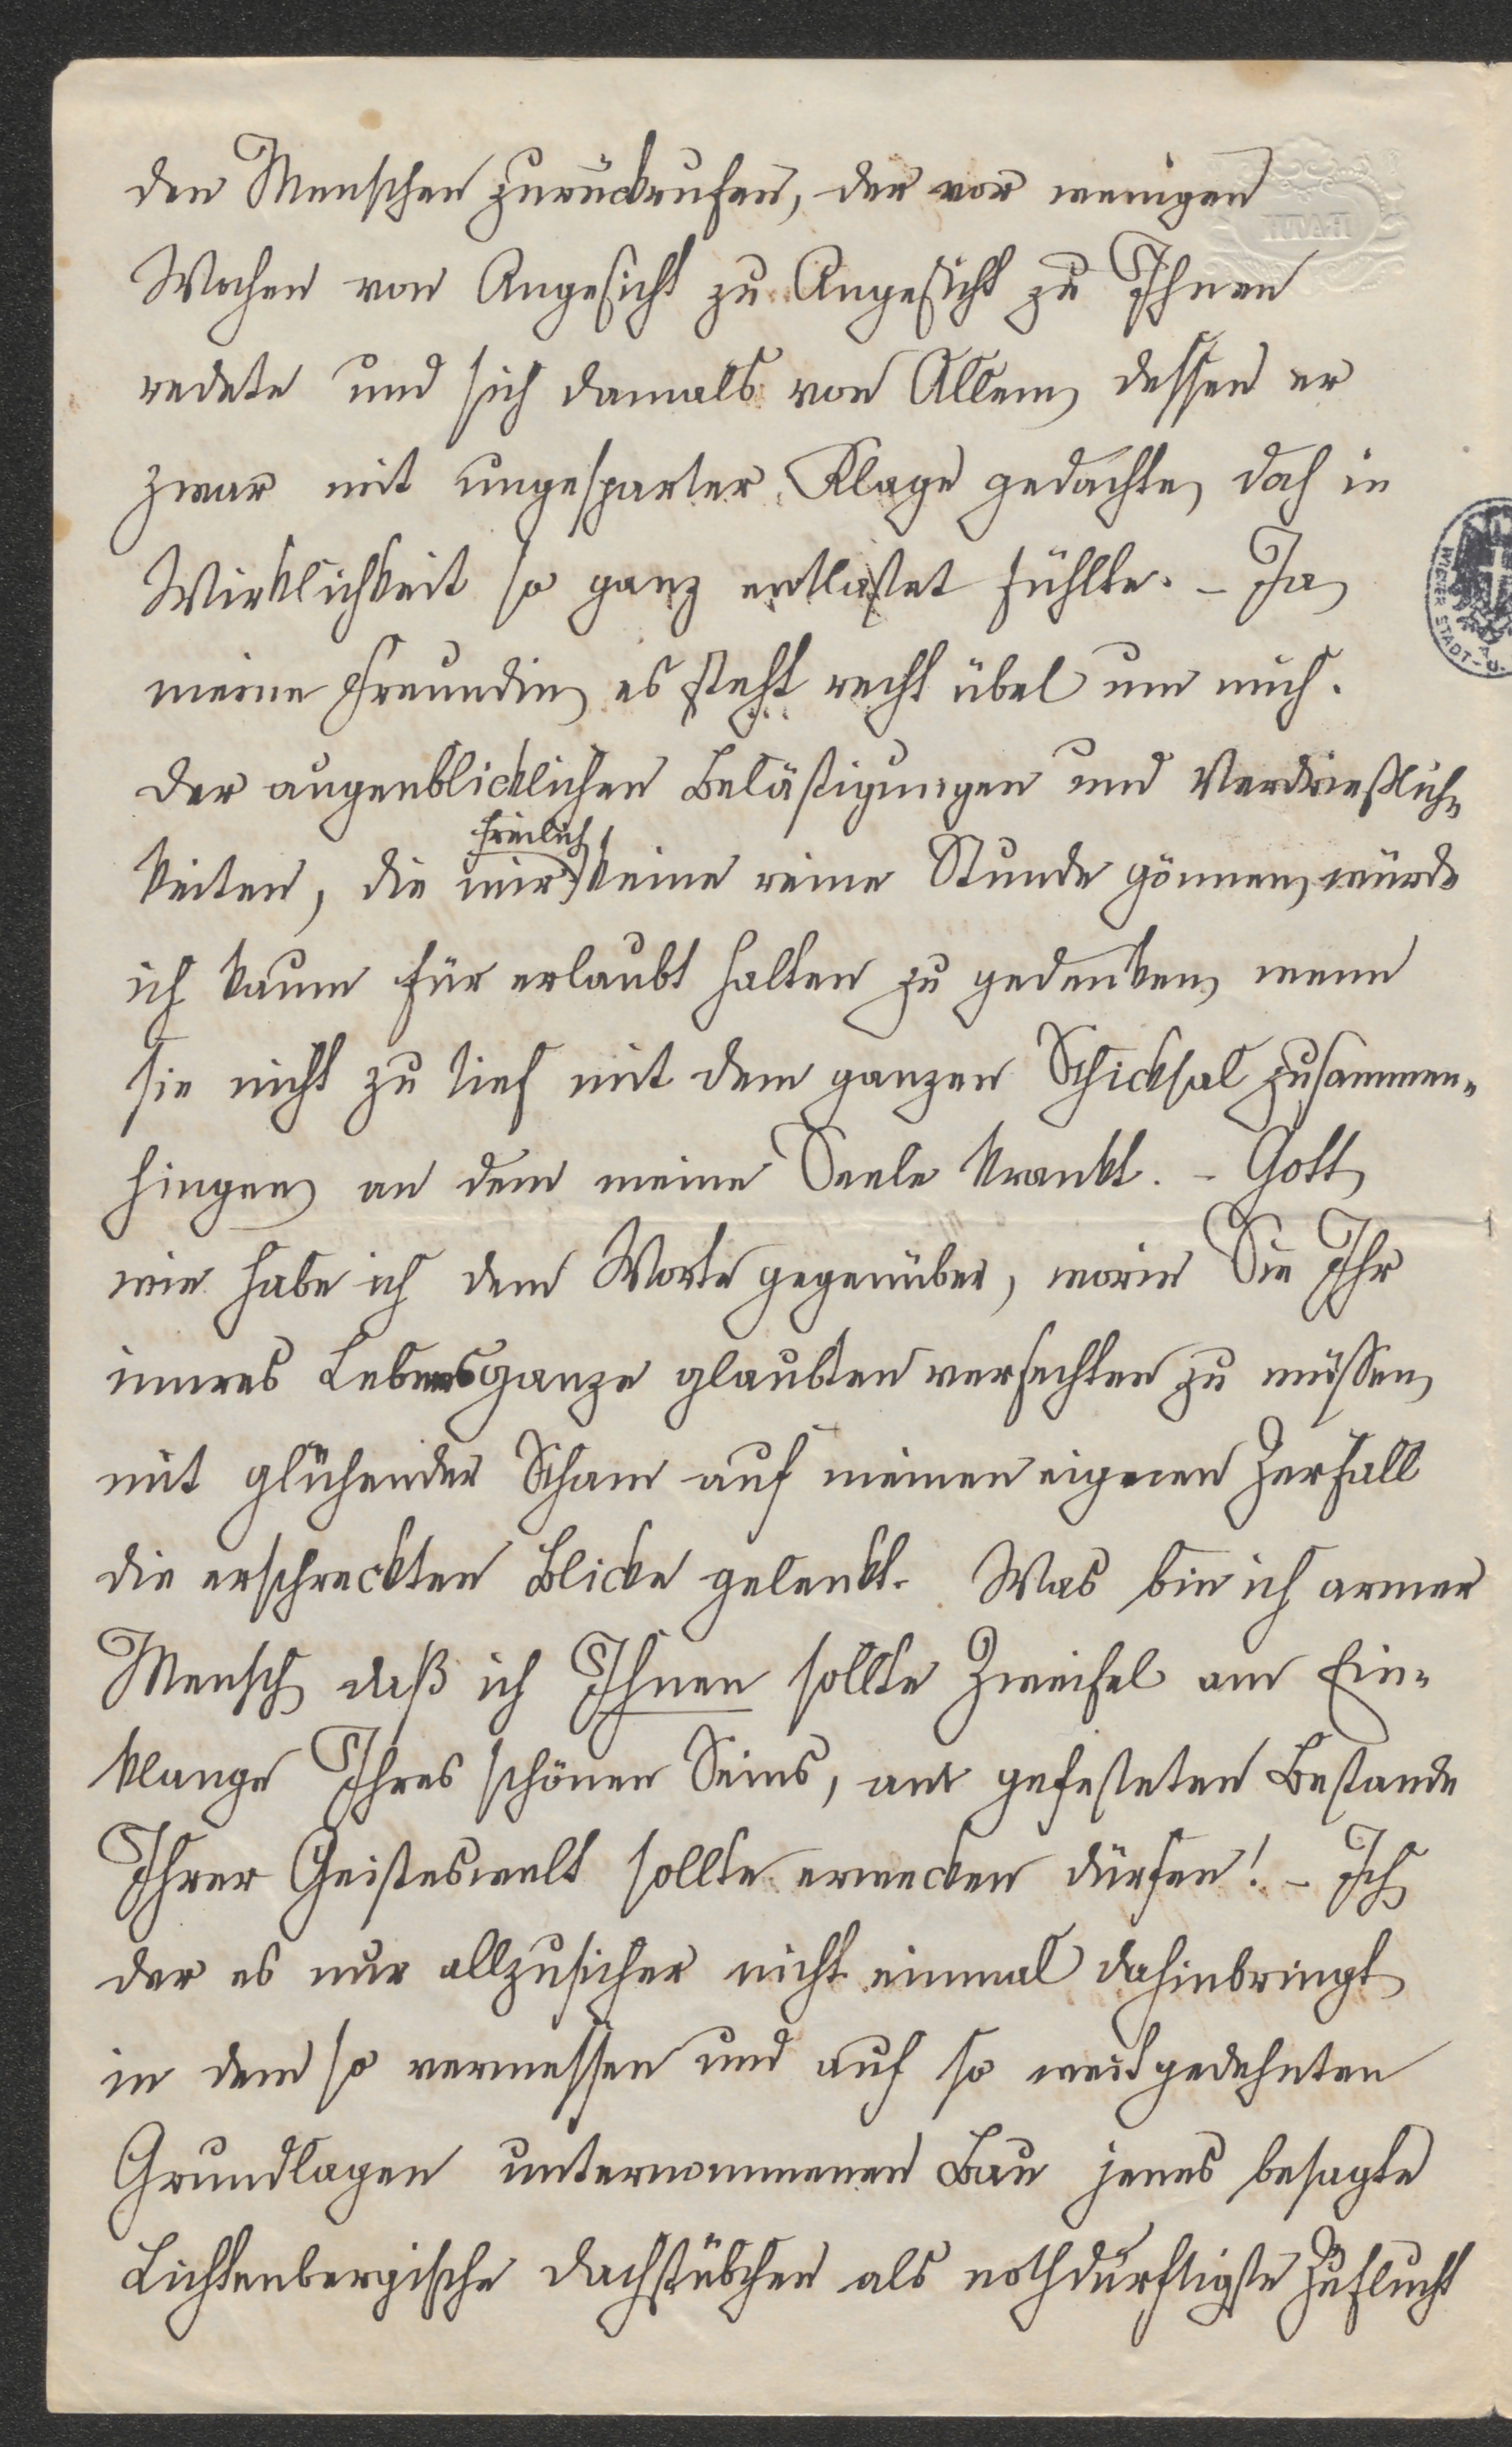 den Menschen zurückrufen, der vor wenigen
Wochen von Angesicht zu Angesicht zu Ihnen
redete und sich damals von Allem, dessen er
zwar mit ungesparter Klage gedachte, doch in
Wirklichkeit so ganz entlastet fühlte. – Ja,
meine Freundin, es steht recht übel um mich.
Der augenblicklichen Belästigungen und Verdrießlich-
freilich
keiten, die mir keine reine Stunde gönnen, würde
ich kaum für erlaubt halten zu gedenken, wenn
sie nicht zu tief mit dem ganzen Schicksal zusammen-
hingen, an dem meine Seele krankt. – Gott,
wie habe ich dem Worte gegenüber, worin Sie Ihr
inneres Lebensganze glaubten verfechten zu müssen,
mit glühender Scham auf meinen eigenen Zerfall
die erschreckten Blicke gelenkt. Was bin ich armer
Mensch, daß ich Ihnen sollte Zweifel am Ein-
klange Ihres schönen Seins, am gefesteten Bestande
Ihrer Geisteswelt sollte erwecken dürfen! – Ich,
der es nur allzusicher nicht einmal dahinbringt,
in dem so vermessen und auf so weitgedehnten
Grundlagen unternommenen Bau jenes besagte
Lichtenbergische Dachstübchen als nothdürftigste Zuflucht
WIENER STADT-U.